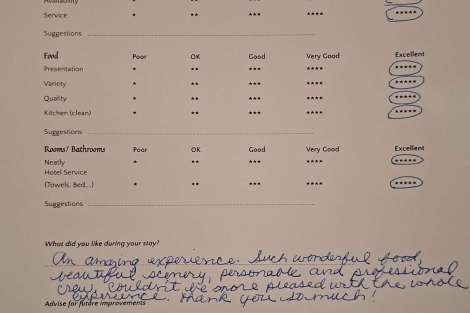 Availability * ** ***
Service * ** *** **** *****
Suggestions
Food Poor OK Good Very Good Excellent
Presentation * ** *** **** *****
Variety * ** *** **** *****
Quality * ** *** **** *****
Kitchen (clean) * ** *** **** *****
Suggestions
Rooms/ Bathrooms Poor OK Good Very Good Excellent
Neatly * ** *** **** *****
Hotel Service
(Towels, Bed...) * ** *** **** *****
Suggestions
What did you like during your stay?
An amazing experience. Such wonderful food,
beautiful scenery, personable and professional
crew, couldn't be more pleased with the whole
experience. Thank you so much!
Advise for future improvements